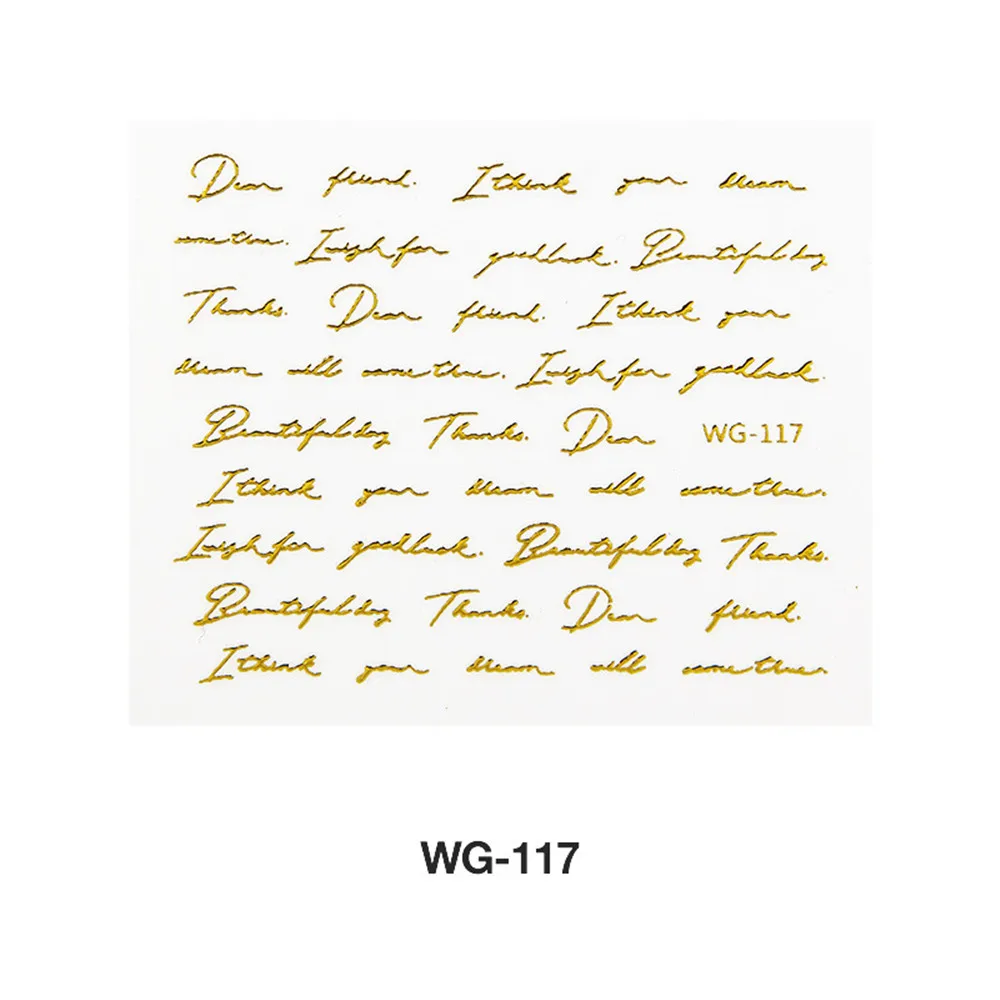 Dear friend. I think your dream
come true. I wish for good luck. Beautiful day
Thanks. Dear friend. I think your
dream will come true. I wish for good luck.
Beautiful day Thanks. Dear WG-117
I think your dream will come true.
I wish for good luck. Beautiful day Thanks.
Beautiful day Thanks. Dear friend.
I think your dream will come true.
WG-117